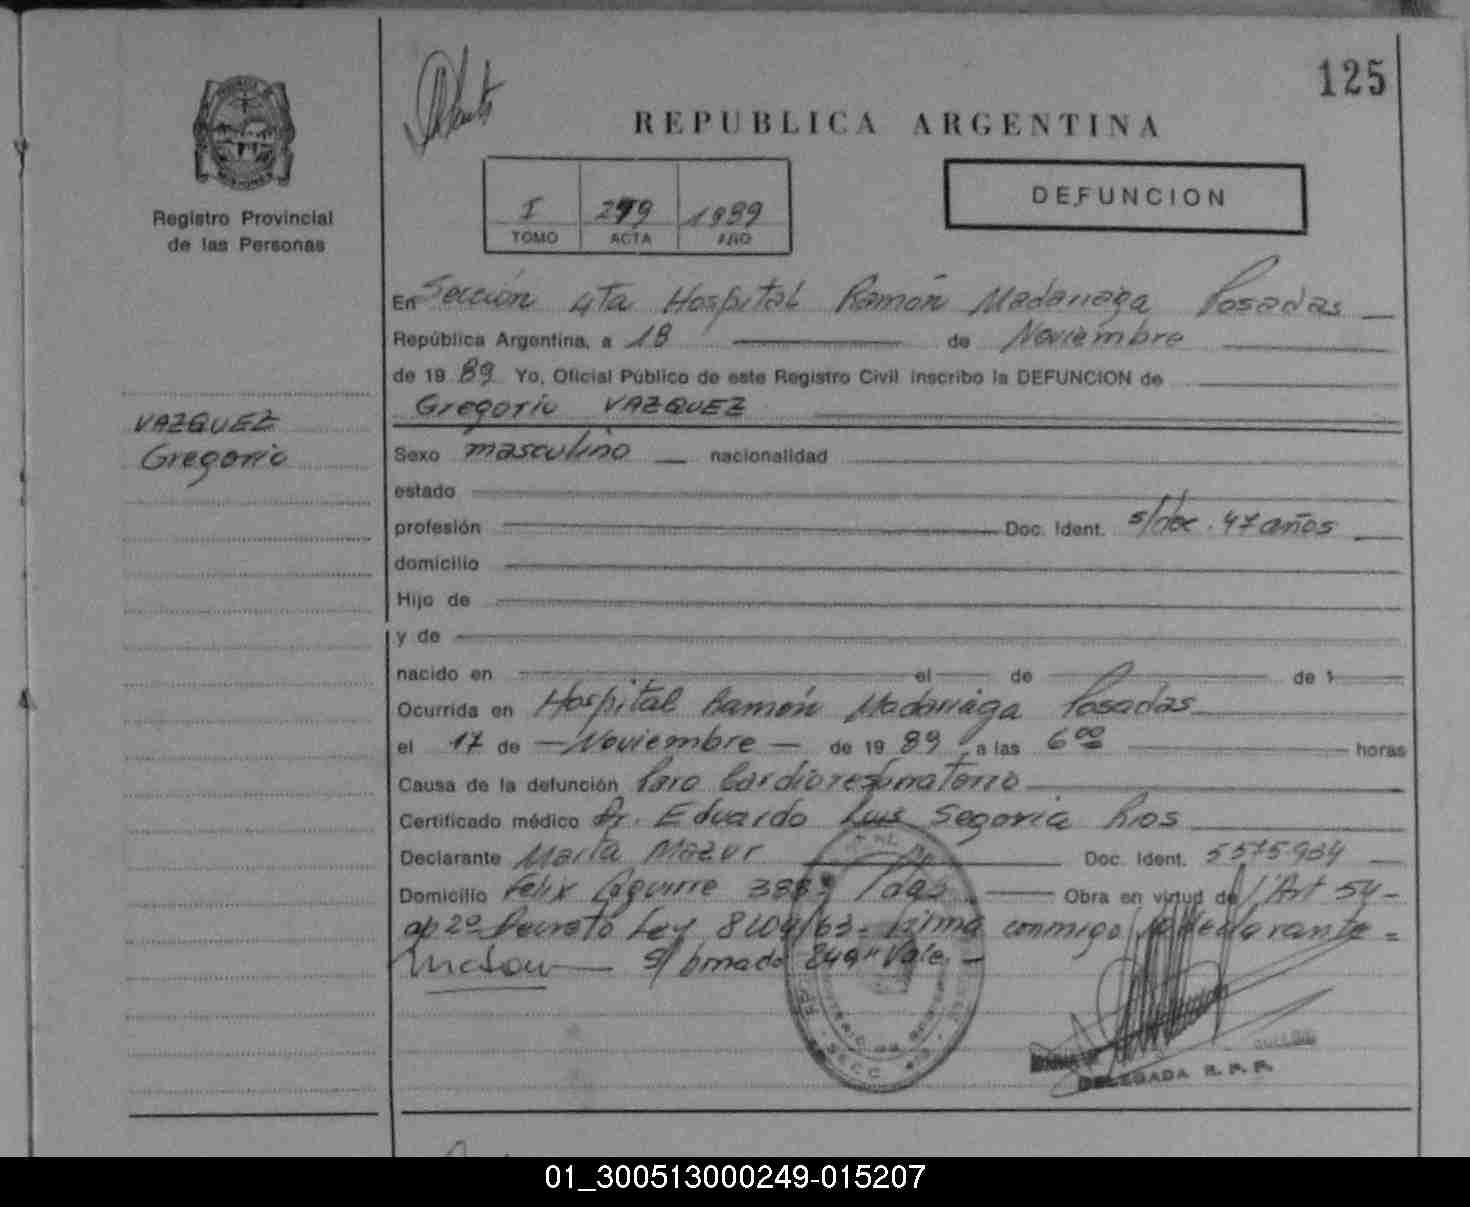 125
REPUBLICA ARGENTINA
Registro Provincial
de las Personas
I 249 1989
TOMO ACTA AÑO
DEFUNCION
En Sección 4ta Hospital Ramón Madariaga Posadas
República Argentina, a 18 de Noviembre
de 19 89 Yo, Oficial Público de este Registro Civil inscribo la DEFUNCION de
Gregorio VAZQUEZ
VAZQUEZ
Gregorio
Sexo masculino nacionalidad
estado
profesión Doc. Ident. s/doc. 47 años
domicilio
Hijo de
y de
nacido en el de de 1
Ocurrida en Hospital Ramón Madariaga Posadas
el 17 de Noviembre de 19 89, a las 6 00 horas
Causa de la defunción Paro Cardiorespiratorio
Certificado médico Dr. Eduardo Luis Segovia Rios
Declarante María Mazur Doc. Ident. 5575934
Domicilio Felix Aguirre Pdas. Obra en virtud de l'Art 54-
ap 2º Decreto Ley 8204/63- Firma conmigo la declarante=
S/ borrado "249" Vale.
SECC.
DELEGADA R. P. P.
01_300513000249-015207